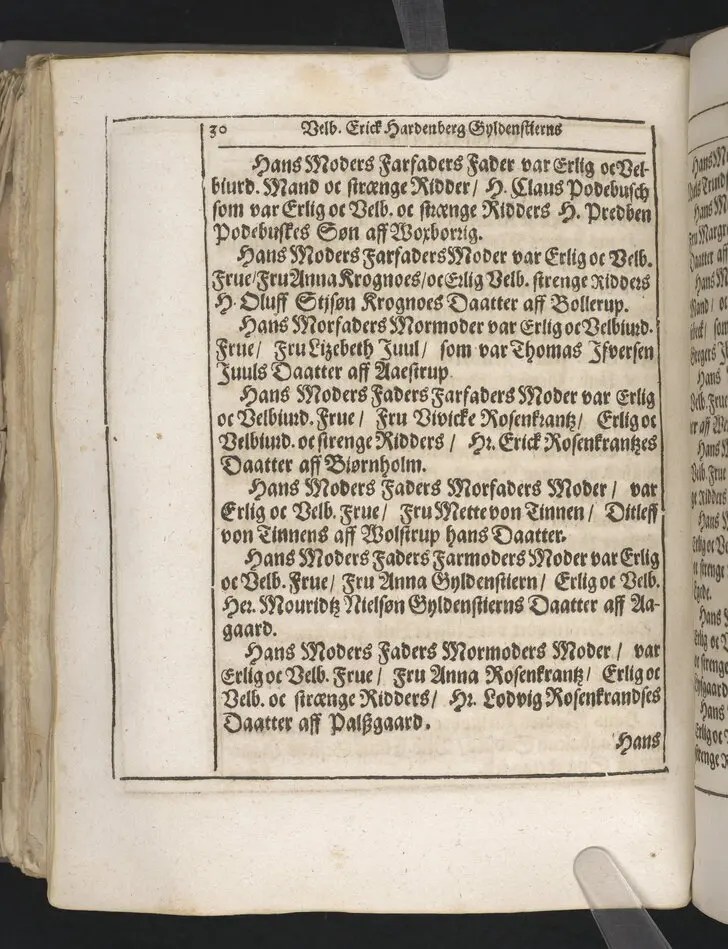 30 Velb. Erick Hardenberg Gyldenstierns
Hans Moders Farfaders Fader var Erlig oc Vel-
biurd. Mand oc strænge Ridder/ H. Claus Podebusch
som var Erlig oc Velb. oc strænge Ridders H. Predben
Podebuskes Søn aff Woxborrig.
Hans Moders Farfaders Moder var Erlig oc Velb.
Frue/ Fru Anna Krognoes/ oc Erlig Velb. strenge Ridders
H. Oluff Stisøn Krognoes Daatter aff Bollerup.
Hans Morfaders Mormoder var Erlig oc Velbiurd.
Frue/ Fru Lizebeth Juul/ som var Thomas Ifversen
Juuls Daatter aff Aaestrup
Hans Moders Faders Farfaders Moder var Erlig
oc Velbiurd. Frue/ Fru Vivicke Rosenkrantz/ Erlig oc
Velbiurd. oc strenge Ridders/ Hr. Erick Rosenkrantzes
Daatter aff Biørnholm.
Hans Moders Faders Morfaders Moder/ var
Erlig oc Velb. Frue/ Fru Mette von Tinnen/ Ditleff
von Tinnens aff Wolstrup hans Daatter.
Hans Moders Faders Farmoders Moder var Erlig
oc Velb. Frue/ Fru Anna Gyldenstiern/ Erlig oc Velb.
Her. Mouridtz Nielsøn Gyldenstierns Daatter aff Aa-
gaard.
Hans Moders Faders Mormoders Moder/ var
Erlig oc Velb. Frue/ Fru Anna Rosenkrantz/ Erlig oc
Velb. oc strænge Ridders/ Hr. Lodvig Rosenkrandses
Daatter aff Palßgaard.
Hans